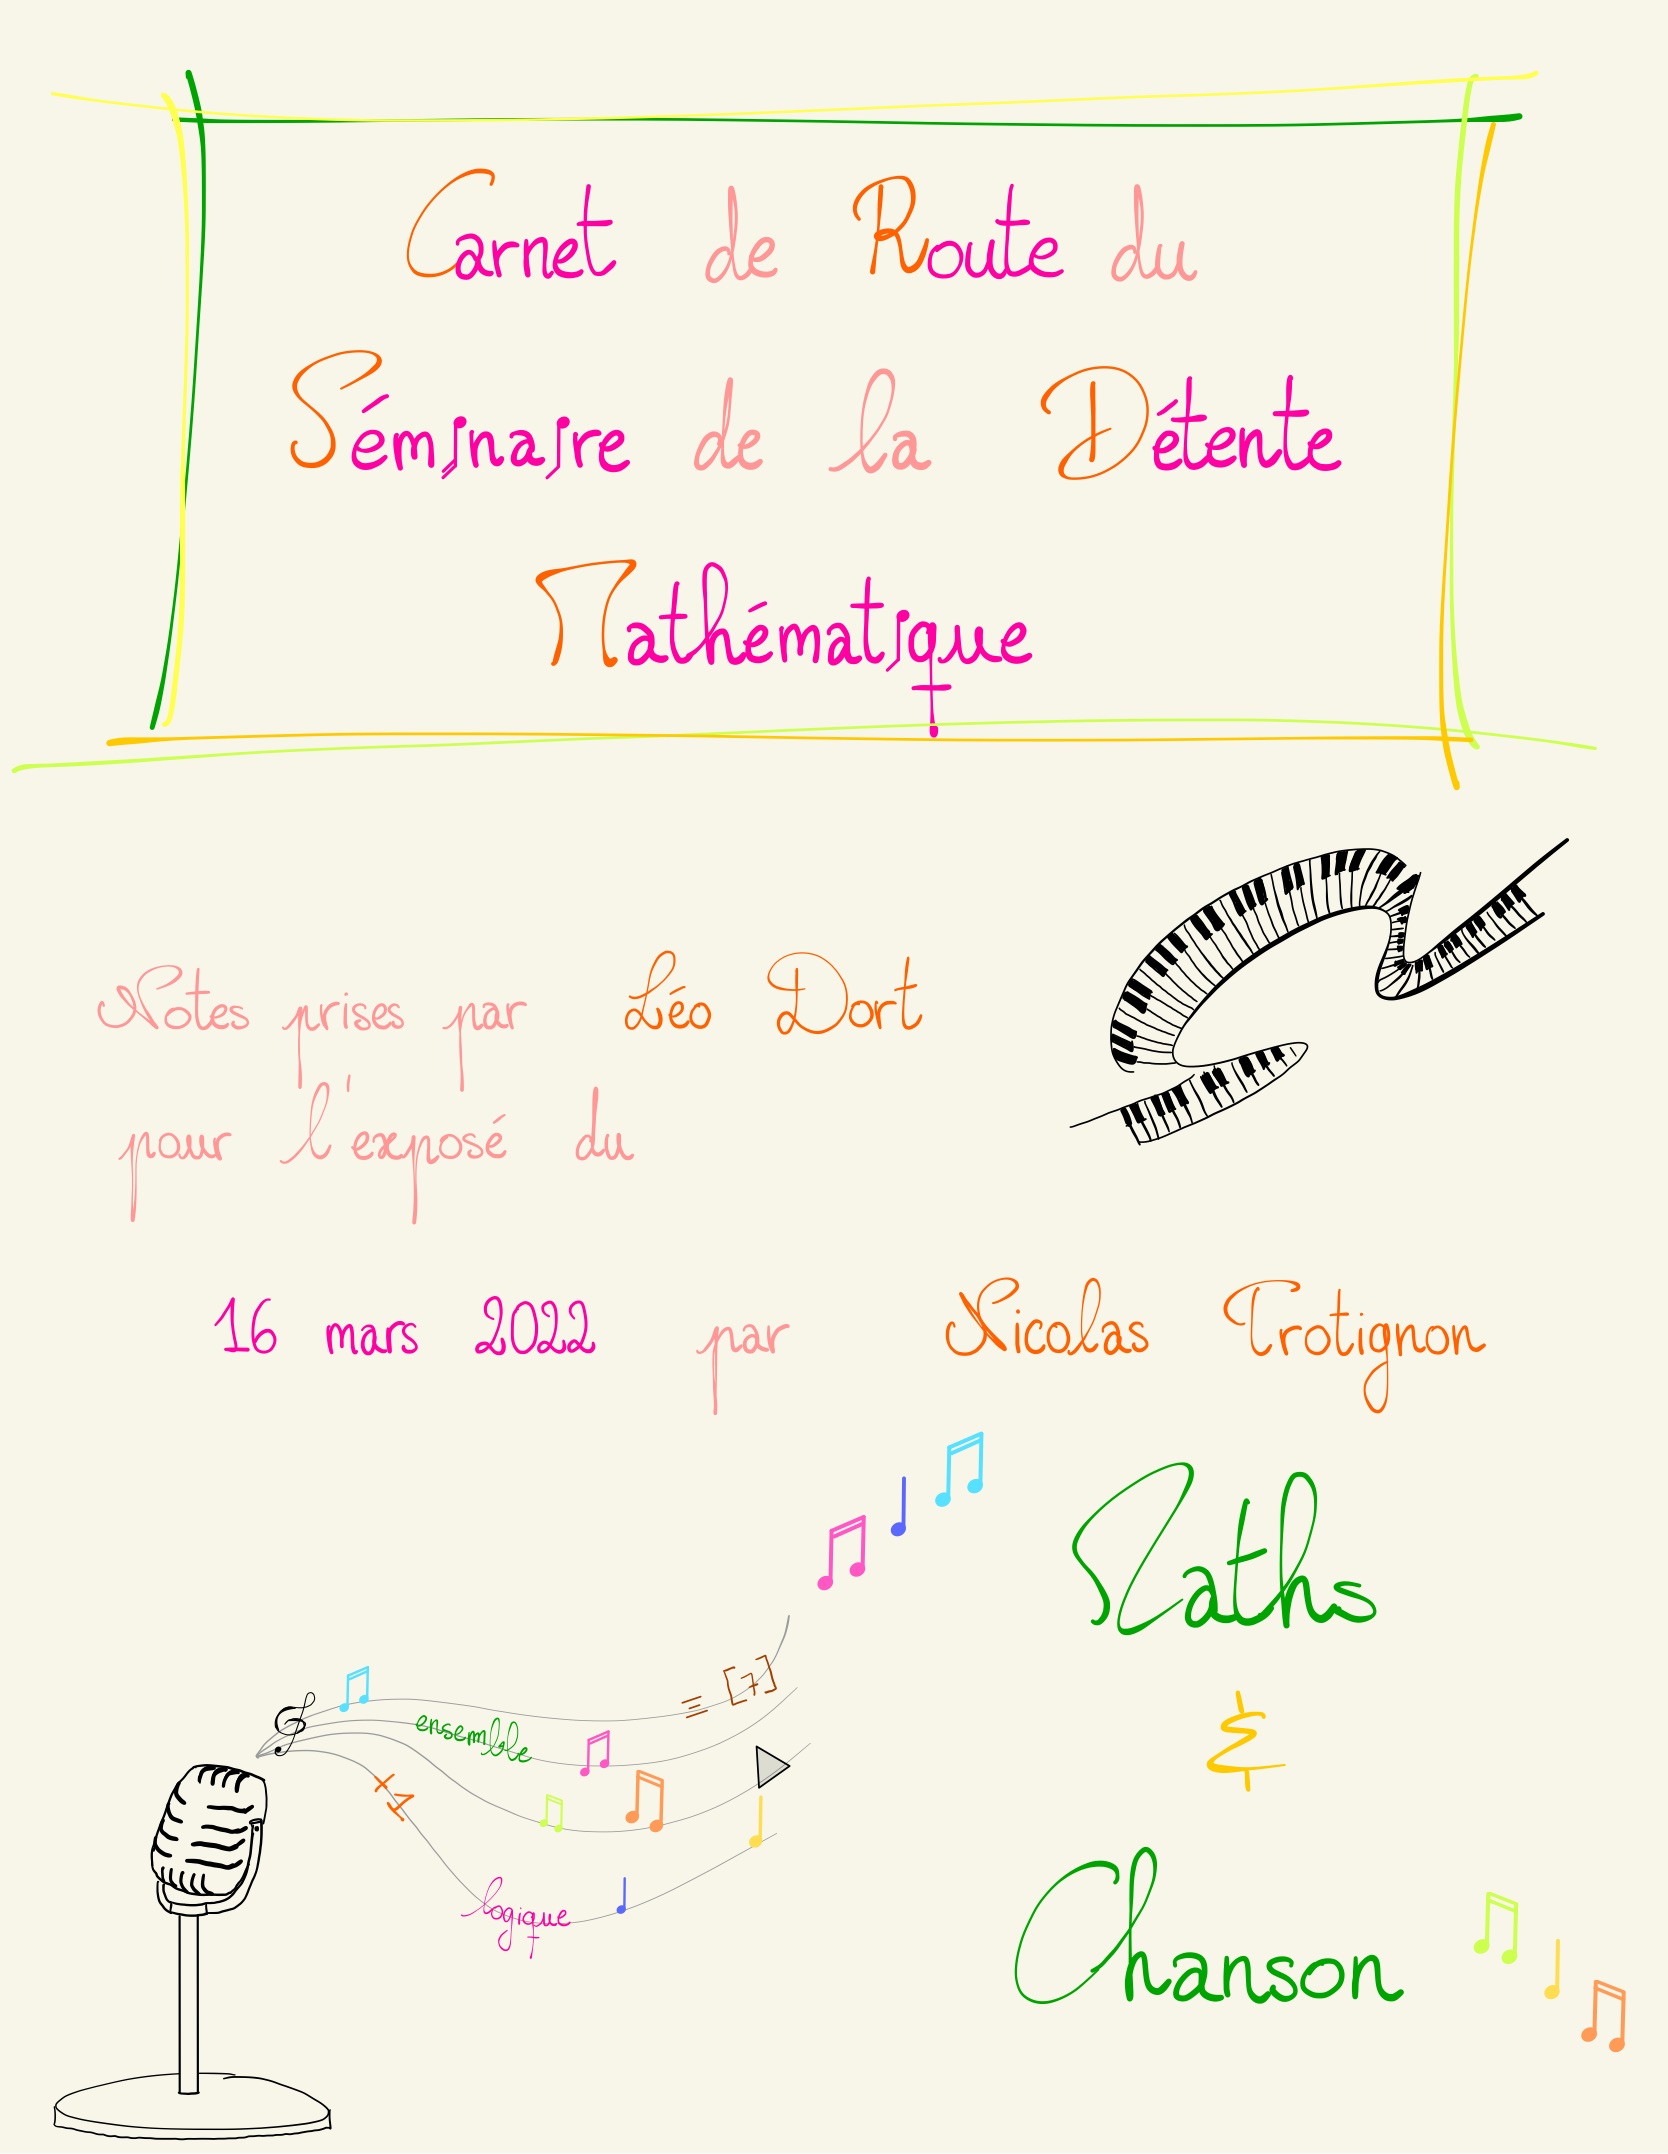 Carnet de Route du
Séminaire de la Détente
Mathématique
Notes prises par Léo Dort
pour l'exposé du
16 mars 2022 par Nicolas Trotignon
Maths
&
Chanson
≡ [7]
ensemble
logique